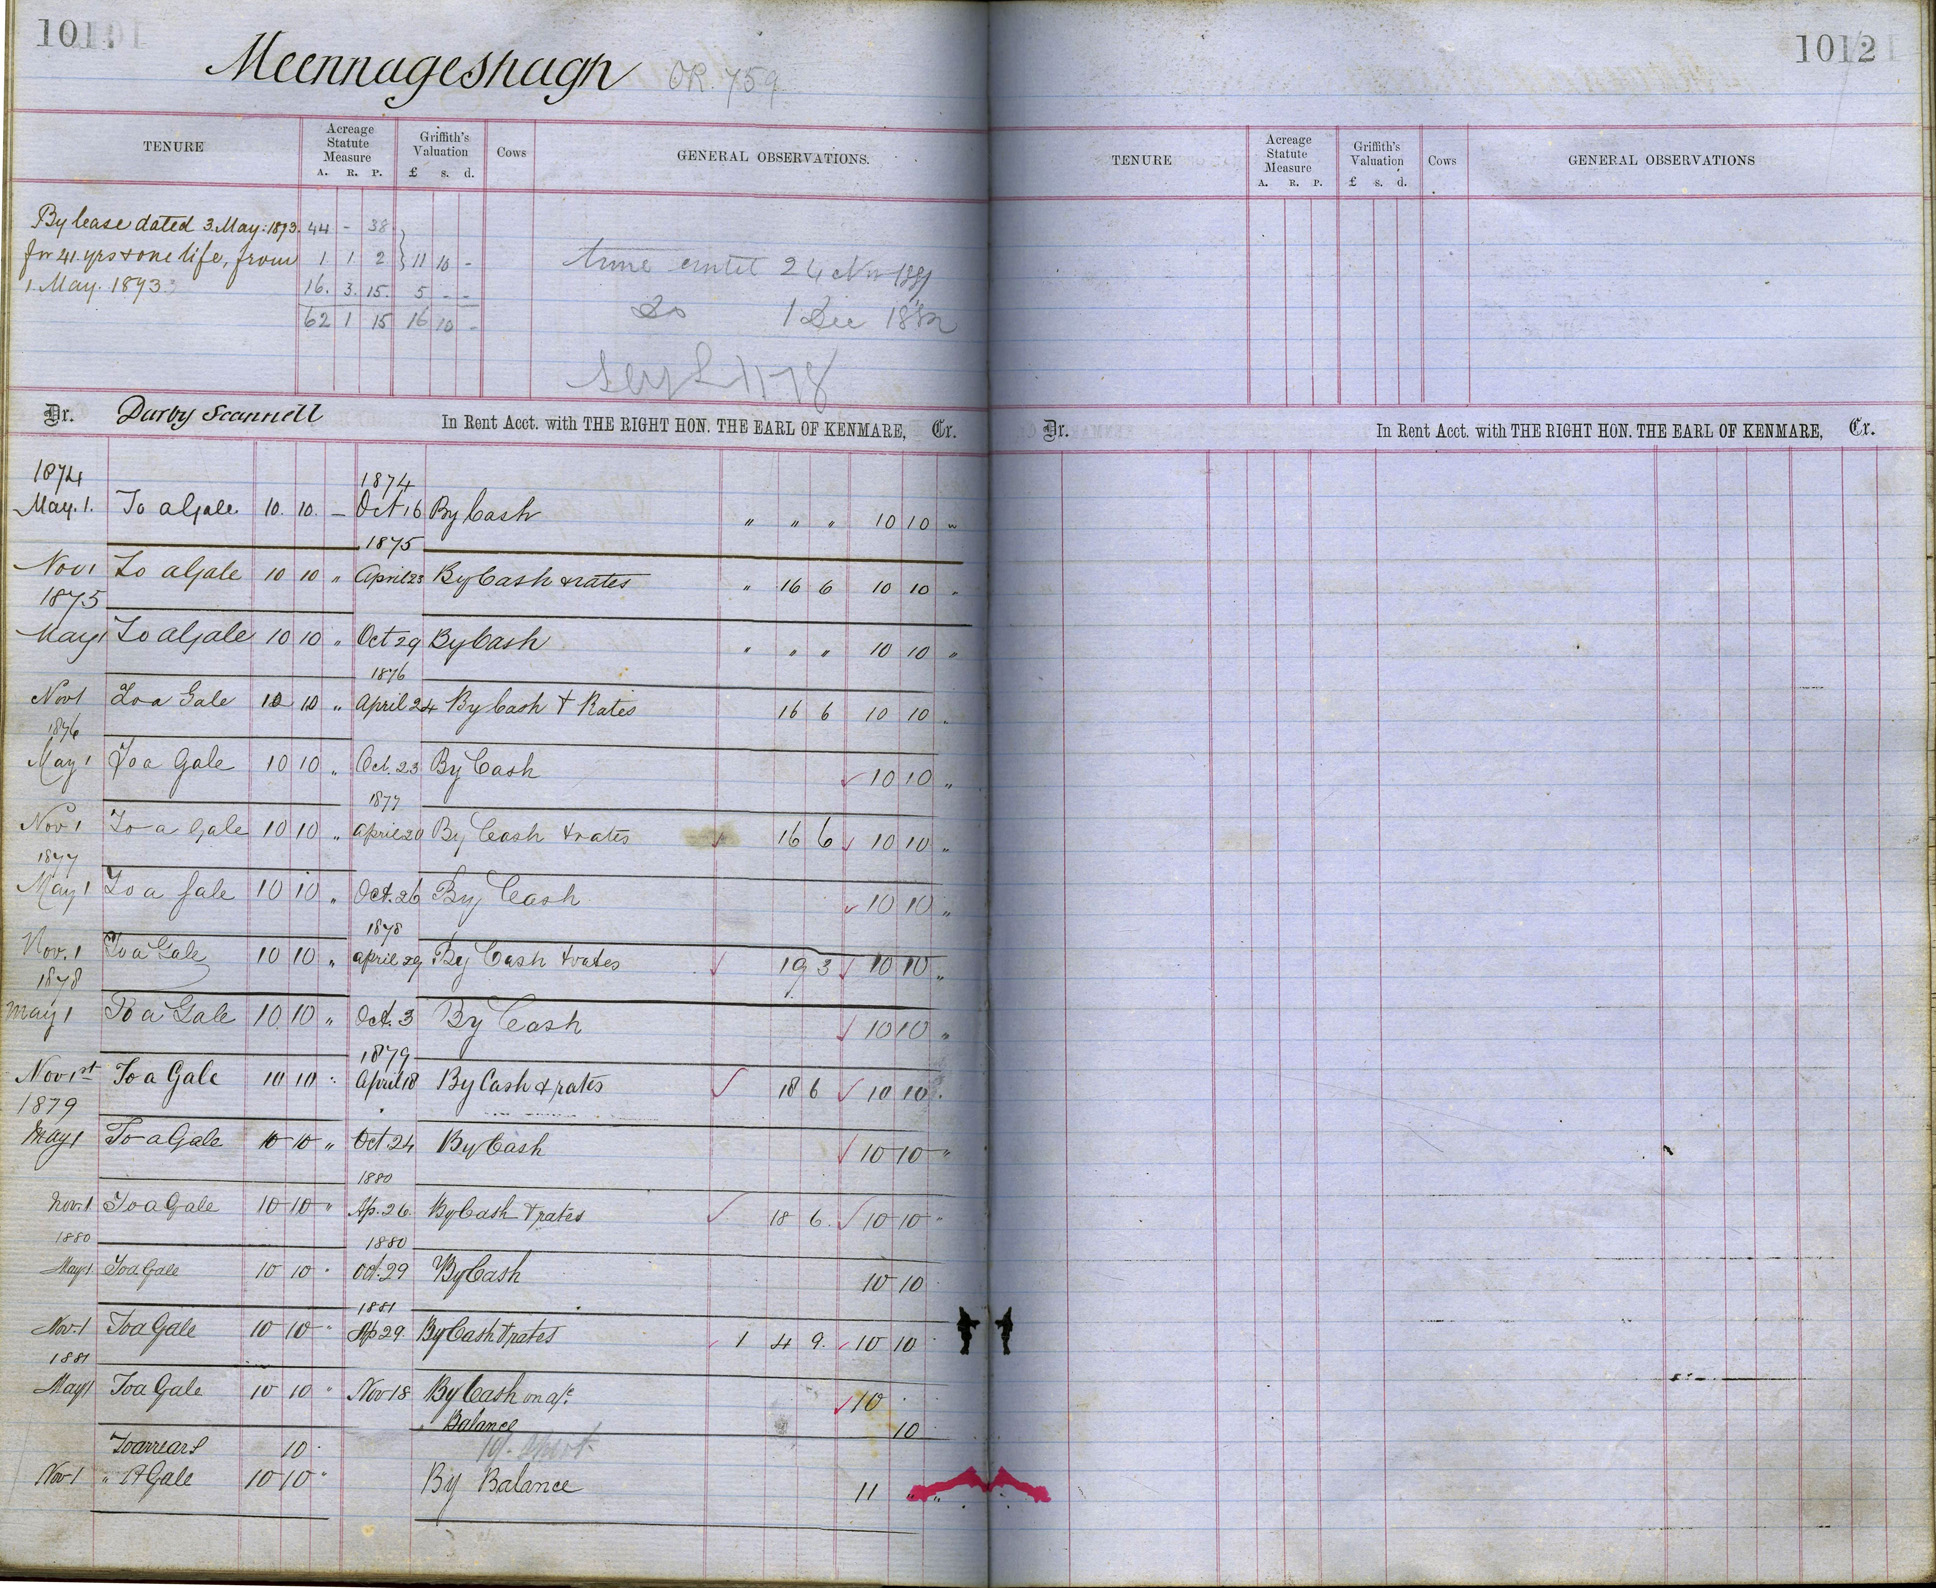 1011
Meennageshagh OR. 759
TENURE Acreage Statute Measure A. R. P. Griffith's Valuation £ s. d. Cows GENERAL OBSERVATIONS.
By lease dated 3 May. 1873. 44 - 38
for 41 yrs & one life, from 1 1 2 } 11 10 - time until 24 Nov 1881
1 May. 1873 16. 3. 15. 5 - -
62 1 15 16 10 - Do 1 Dec 1882
Dr. Darby Scannell In Rent Acct. with THE RIGHT HON. THE EARL OF KENMARE, Cr.
1874 1874
May. 1. To a Gale 10. 10. - Oct 16 By Cash " " " 10 10 "
1875
Nov 1 To a Gale 10 10 " April 23 By Cash & rates " 16 6 10 10 "
1875
May 1 To a Gale 10 10 " Oct 29 By Cash " " " 10 10 "
1876
Nov 1 To a Gale 10 10 " April 24 By Cash & Rates 16 6 10 10 "
1876
May 1 To a Gale 10 10 " Oct. 23 By Cash 10 10 "
1877
Nov 1 To a Gale 10 10 " April 20 By Cash & rates 16 6 10 10 "
1877
May 1 To a Gale 10 10 " Oct. 26 By Cash 10 10 "
1878
Nov. 1 To a Gale 10 10 " April 29 By Cash & rates 19 3 10 10 "
1878
May 1 To a Gale 10 10 " Oct. 3 By Cash 10 10 "
1879
Nov 1st To a Gale 10 10 " April 18 By Cash & rates 18 6 10 10 "
1879
May 1 To a Gale 10 10 " Oct 24 By Cash 10 10 "
1880
Nov. 1 To a Gale 10 10 " Ap. 26. By Cash & rates 18 6. 10 10 "
1880 1880
May 1 To a Gale 10 10 " Oct. 29 By Cash 10 10
1881
Nov. 1 To a Gale 10 10 " Ap 29. By Cash & rates 1 4 9. 10 10
1881
May 1 To a Gale 10 10 " Nov 18 By Cash on a/c 10
" Balance 10
To arrears 10 10/- short
Nov 1 " A Gale 10 10 " By Balance 11 " "
1012
TENURE Acreage Statute Measure A. R. P. Griffith's Valuation £ s. d. Cows GENERAL OBSERVATIONS
Dr. In Rent Acct. with THE RIGHT HON. THE EARL OF KENMARE, Cr.